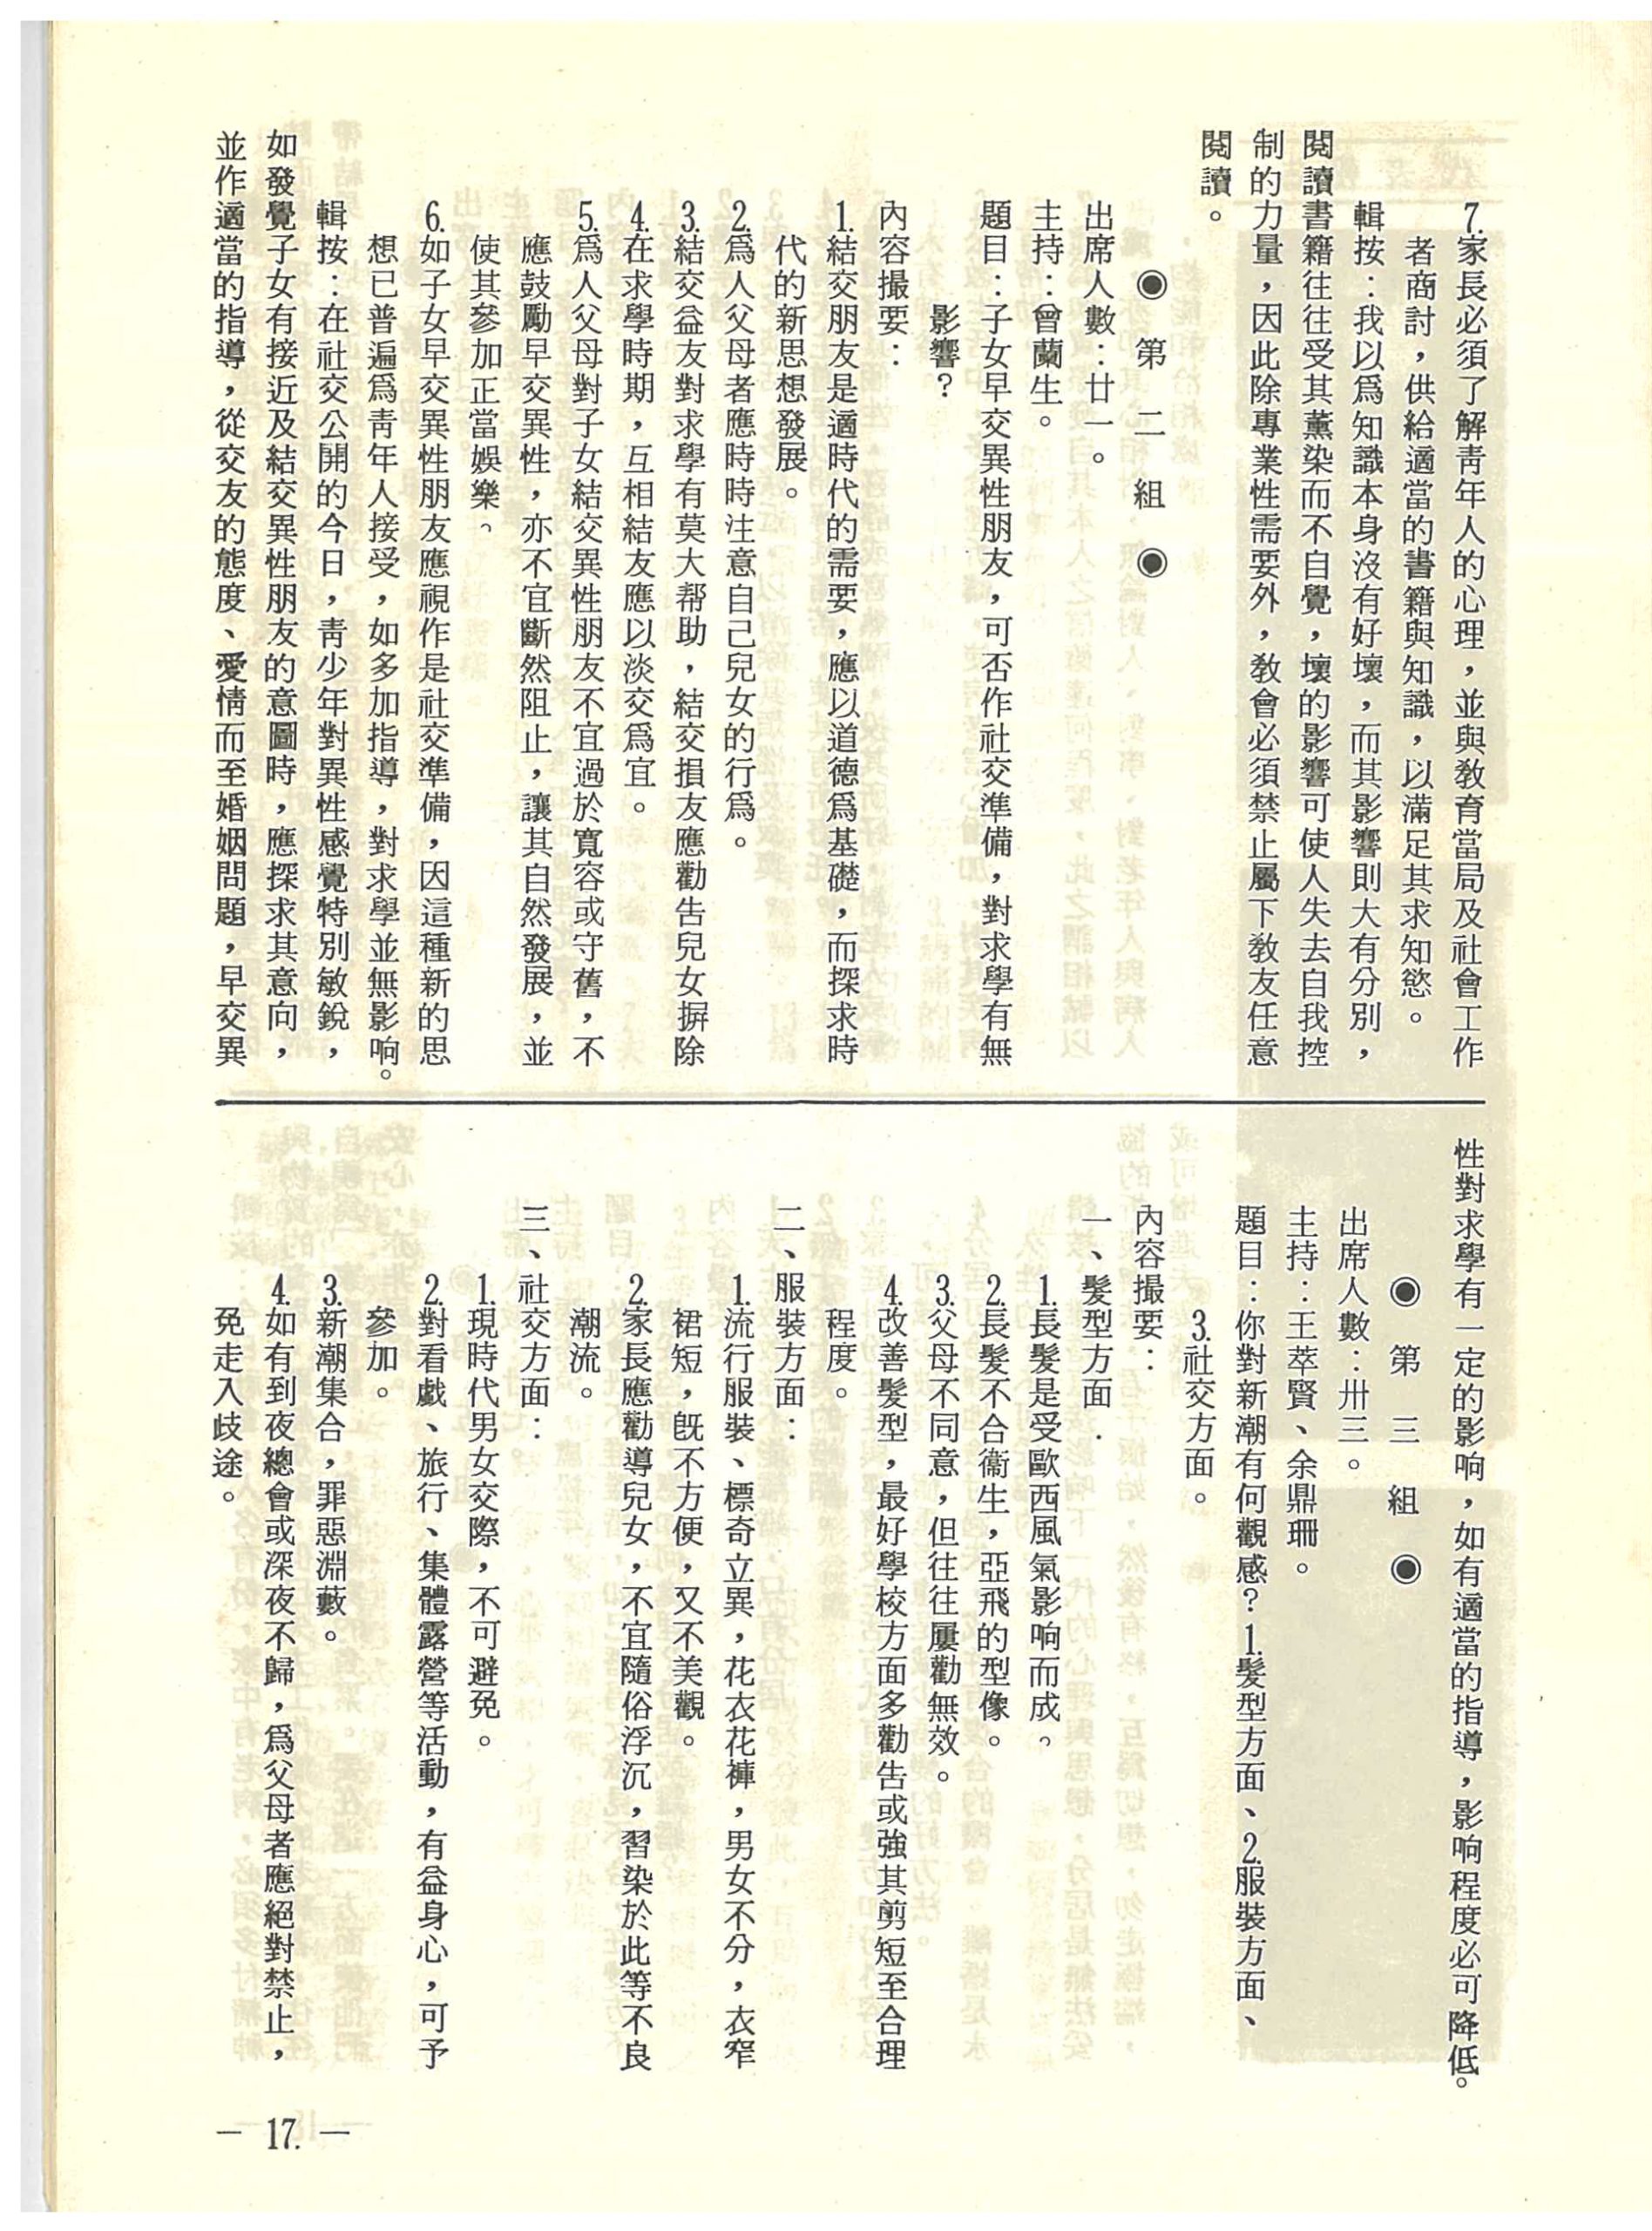 7.家長必須了解靑年人的心理，並與敎育當局及社會工作
者商討，供給適當的書籍與知識，以滿足其求知慾。
輯按：我以爲知識本身沒有好壞，而其影響則大有分別，
閱讀書籍往往受其薰染而不自覺，壞的影響可使人失去自我控
制的力量，因此除專業性需要外，敎會必須禁止屬下敎友任意
閱讀。
◉　第　二　組　◉
出席人數：廿一。
主持：曾蘭生。
題目：子女早交異性朋友，可否作社交準備，對求學有無
影響？
內容撮要：
1.結交朋友是適時代的需要，應以道德爲基礎，而探求時
代的新思想發展。
2.爲人父母者應時時注意自己兒女的行爲。
3.結交益友對求學有莫大帮助，結交損友應勸告兒女摒除
4.在求學時期，互相結友應以淡交爲宜。
5.爲人父母對子女結交異性朋友不宜過於寬容或守舊，不
應鼓勵早交異性，亦不宜斷然阻止，讓其自然發展，並
使其參加正當娛樂。
6.如子女早交異性朋友應視作是社交準備，因這種新的思
想已普遍爲靑年人接受，如多加指導，對求學並無影响。
輯按：在社交公開的今日，靑少年對異性感覺特別敏銳，
如發覺子女有接近及結交異性朋友的意圖時，應探求其意向，
並作適當的指導，從交友的態度、愛情而至婚姻問題，早交異
性對求學有一定的影响，如有適當的指導，影响程度必可降低。
◉　第　三　組　◉
出席人數：卅三。
主持：王萃賢、余鼎珊。
題目：你對新潮有何觀感？1.髮型方面、2.服裝方面、
3.社交方面。
內容撮要：
一、髮型方面．
1.長髮是受歐西風氣影响而成。
2.長髮不合衞生，亞飛的型像。
3.父母不同意，但往往屢勸無效。
4.改善髮型，最好學校方面多勸告或強其剪短至合理
程度。
二、服裝方面：
1.流行服裝、標奇立異，花衣花褲，男女不分，衣窄
裙短，旣不方便，又不美觀。
2.家長應勸導兒女，不宜隨俗浮沉，習染於此等不良
潮流。
三、社交方面：
1.現時代男女交際，不可避免。
2.對看戲、旅行、集體露營等活動，有益身心，可予
參加。
3.新潮集合，罪惡淵藪。
4.如有到夜總會或深夜不歸，爲父母者應絕對禁止，
免走入歧途。
— 17. —